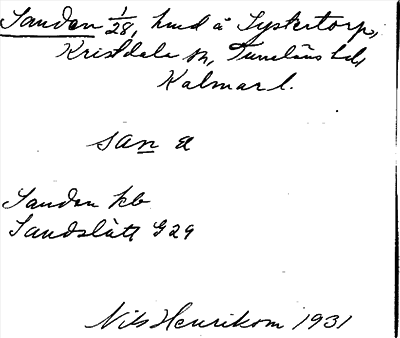 Sandan 1/28, hmd å Lyskertorp,
Kristdala sn, Tunaläns hd,
Kalmar l.
san a
Sandan kb
Sandslätt G29
Nils Henrikom 1931